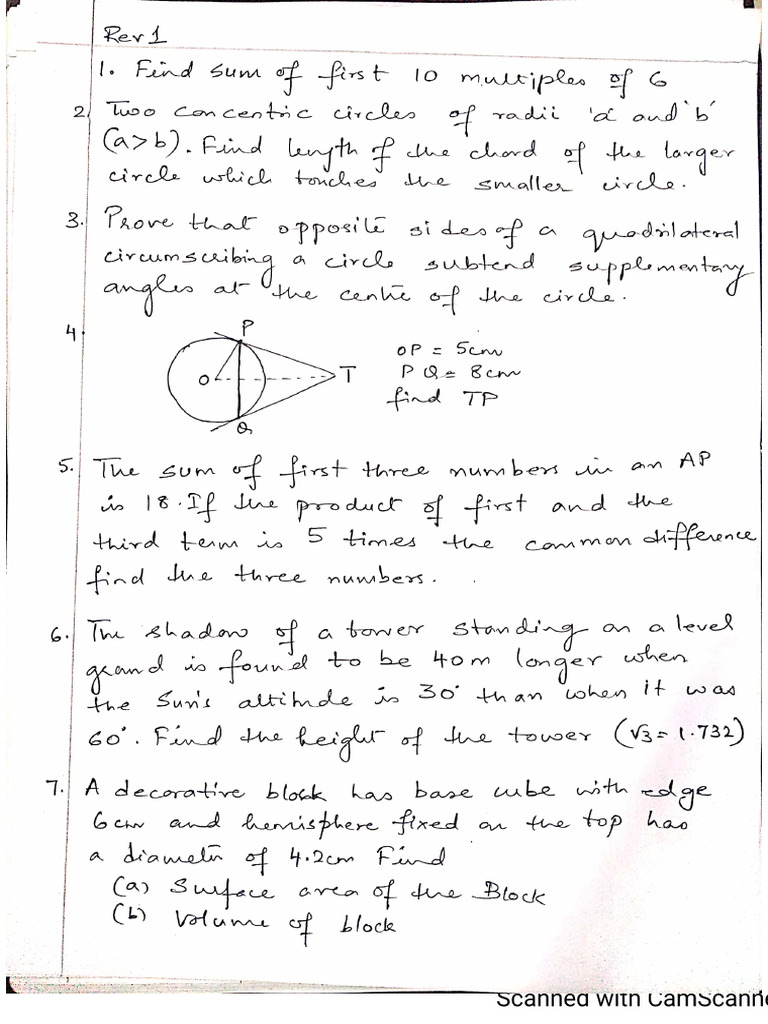 Rev 1
1. Find sum of first 10 multiples of 6
2. Two concentric circles of radii 'a' and 'b'
(a>b). Find length of the chord of the larger
circle which touches the smaller circle.
3. Prove that opposite sides of a quadrilateral
circumscribing a circle subtend supplementary
angles at the centre of the circle.
4.
P
O
T
Q
OP = 5cm
PQ = 8cm
find TP
5. The sum of first three numbers in an AP
is 18. If the product of first and the
third term is 5 times the common difference
find the three numbers.
6. The shadow of a tower standing on a level
grand is found to be 40m longer when
the Sun's altitude is 30° than when it was
60°. Find the height of the tower (√3 = 1.732)
7. A decorative block has base cube with edge
6cm and hemisphere fixed on the top has
a diameter of 4.2cm Find
(a) Surface area of the Block
(b) Volume of block
Scanned with CamScanne